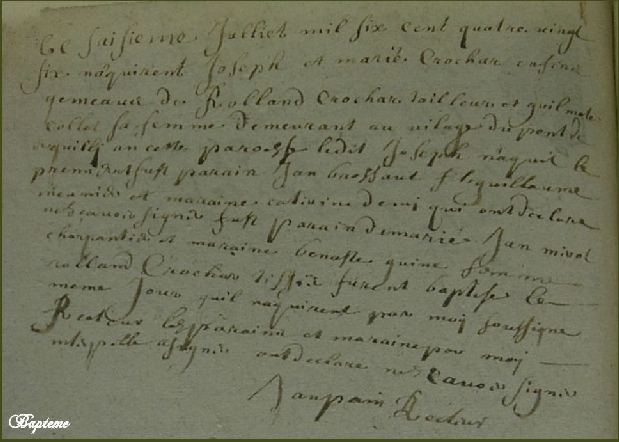 Le saisieme Julliet mil six cent quatre vingt
six naquirent Joseph et marie Crochar enfans
gemeaux de Rolland Crochar tailleur et guilmete
Collet sa femme demeurant au vilage du pont de
quilli an cette paroesse ledit Joseph naquit le
premier et fust parain Jan brossaut fs de guillaume
et maraine caterine demi qui ont declare
ne scavoir signer fust parain de marie Jan mivol
charpantier et maraine benoiste guine femme
rolland Crochar tissier furent baptise le
meme Jour quil naquirent par moy soussigne
Recteur les parains et maraine par moy
interpelle a signer ont declare ne scavoir signer
Janpain Recteur
Bapteme